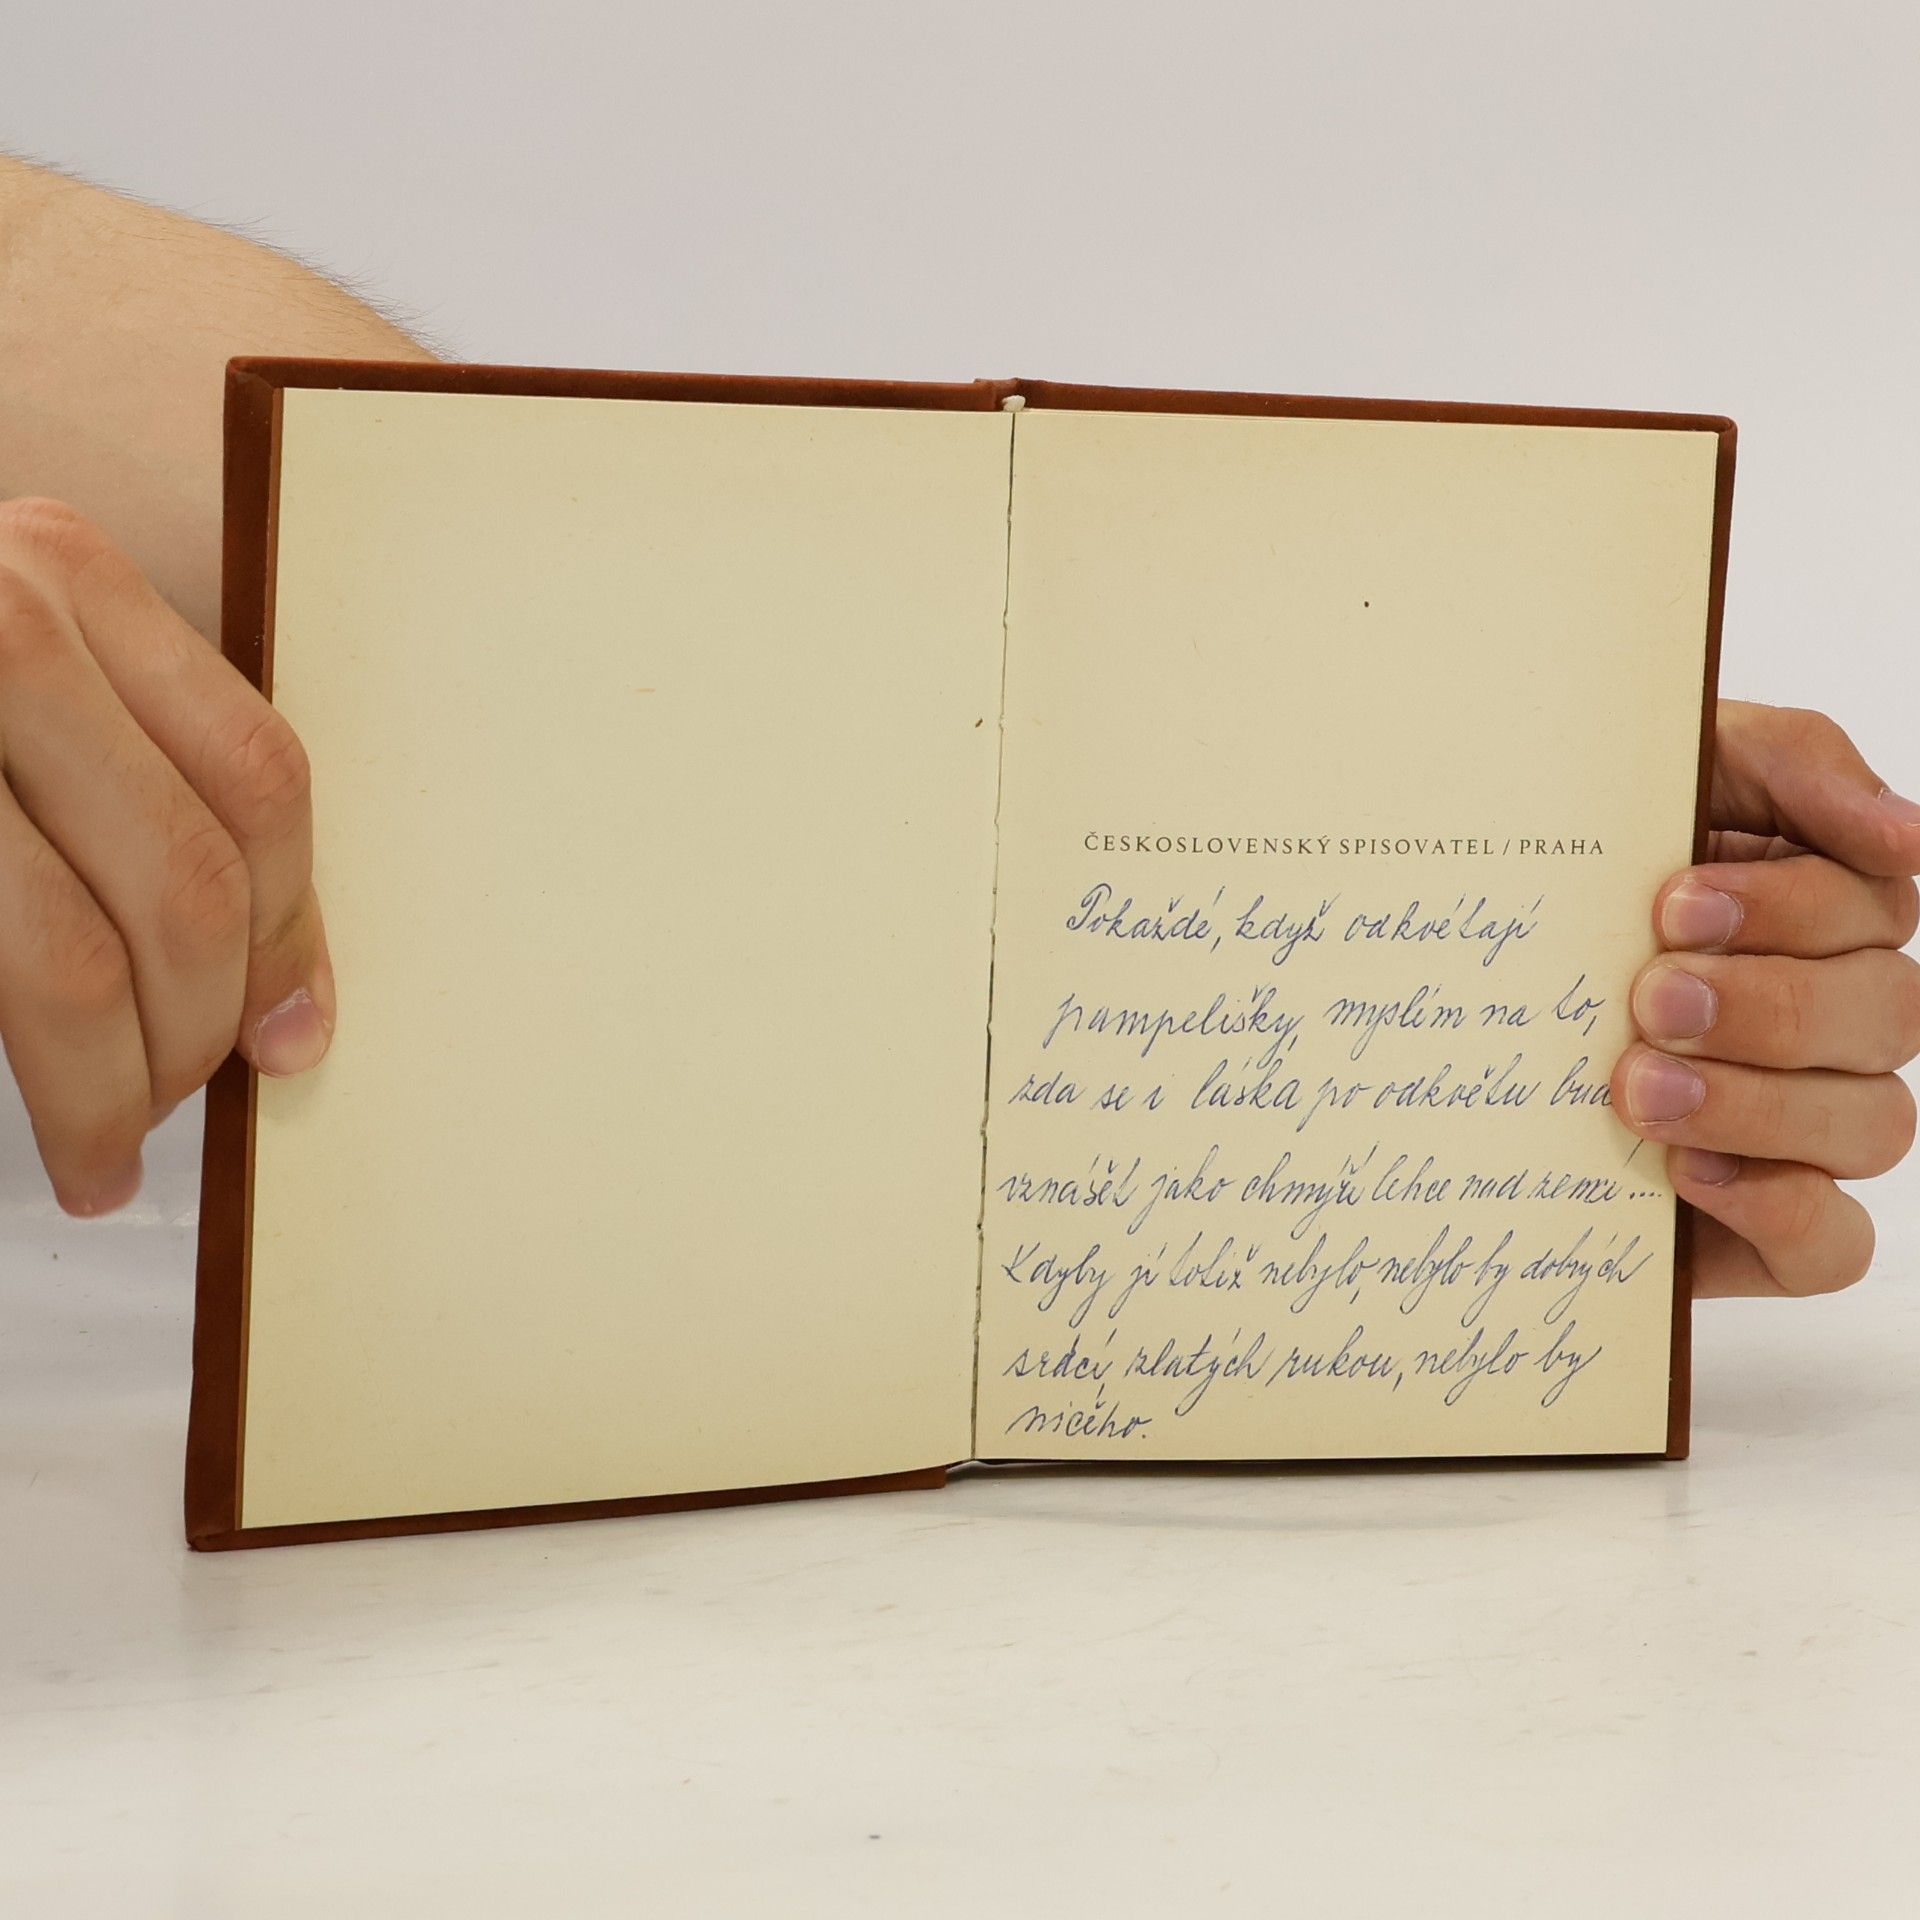 ČESKOSLOVENSKÝ SPISOVATEL / PRAHA
Pokaždé, když odkvétají
pampelišky, myslím na to,
zda se i láska po odkvětu
vznášet jako chmýří lehce nad zemí....
Kdyby jí totiž nebylo, nebylo by dobrých
srdcí, zlatých rukou, nebylo by
ničeho.